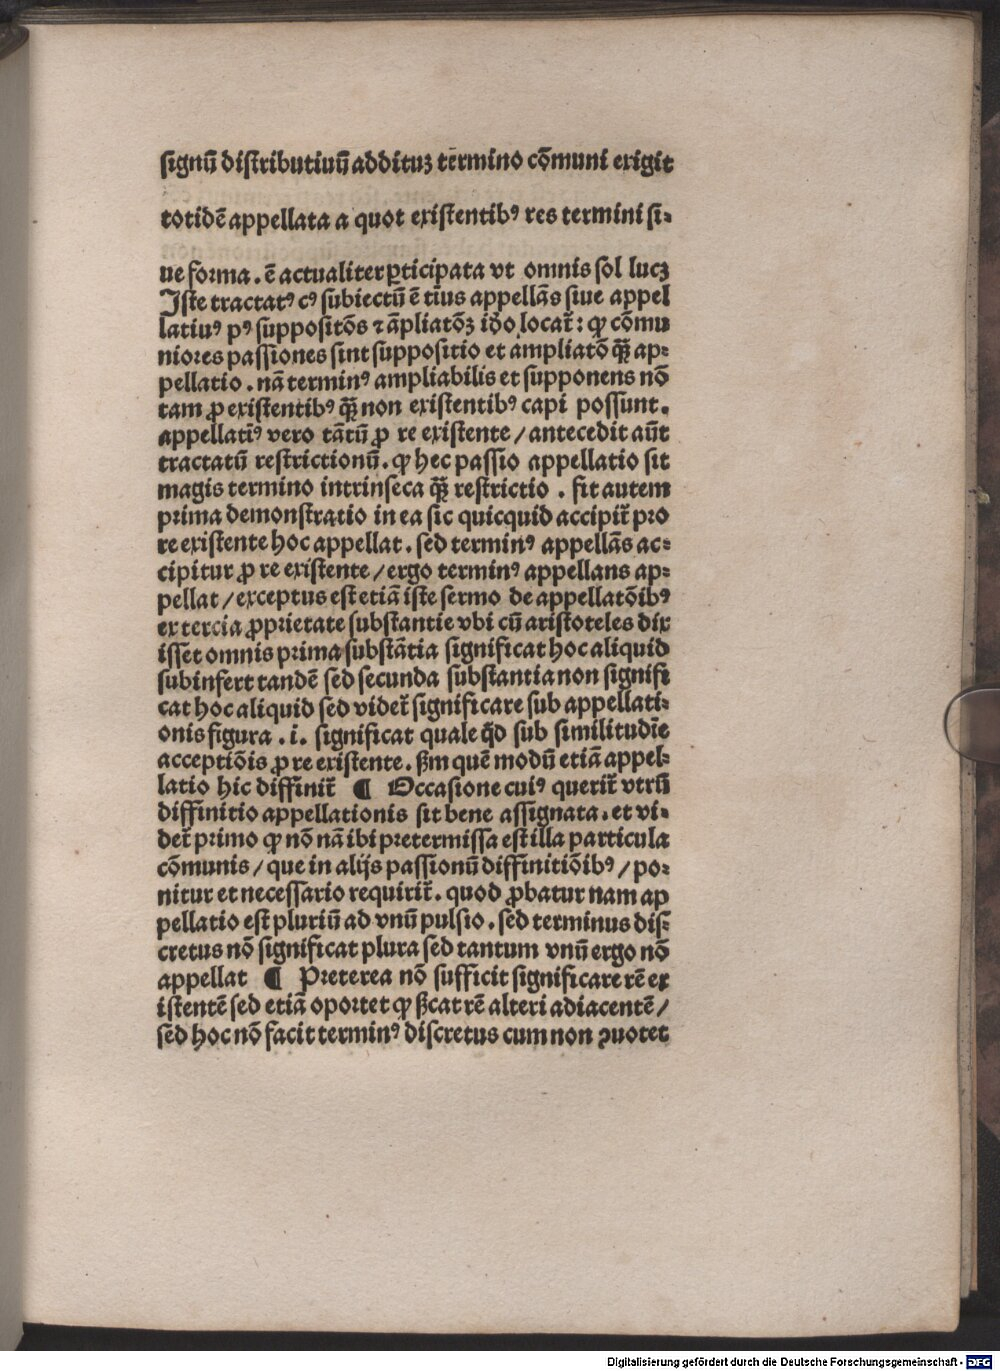 signū distributiuū addituꝫ termino cōmuni exigit
totidē appellata a quot existentibꝰ res termini si⸗
ue forma. ē actualiter ꝑticipata vt omnis sol lucꝫ
Iste tractatꝰ cꝰ subiectū ē tius appellās siue appel
latiuꝰ pꝰ suppositōs ⁊ āpliatōꝫ iḋo locat᷑: ꝙ cōmu
niores passiones sint suppositio et ampliatō q̄ꝫ ap⸗
pellatio. nā terminꝰ ampliabilis et supponens nō
tam ꝓ existentibꝰ q̄ꝫ non existentibꝰ capi possunt.
appellatīꝰ vero tātū ꝓ re existente / antecedit aūt
tractatū restrictionū. ꝙ hec passio appellatio sit
magis termino intrinseca q̄ꝫ restrictio. fit autem
prima demonstratio in ea sic quicquid accipit᷑ pro
re existente hoc appellat. sed terminꝰ appellās ac⸗
cipitur ꝓ re existente / ergo terminꝰ appellans ap⸗
pellat / exceptus est etiā iste sermo de appellatōibꝰ
ex tercia ꝓprietate substantie vbi cū aristoteles dix
isset omnis prima substātia significat hoc aliquid
subinfert tandē sed secunda substantia non signifi
cat hoc aliquid sed videt᷑ significare sub appellati⸗
onis figura. .i. significat quale qḋ sub similitudīe
acceptiōis ꝓ re existente. ẞm quē modū etiā appel⸗
latio hic diffinit᷑ ¶ Occasione cuiꝰ querit᷑ vtrū
diffinitio appellationis sit bene assignata. et vi⸗
det᷑ primo ꝙ nō nā ibi pretermissa est illa particula
cōmunis / que in alijs passionū diffinitiōibꝰ / po⸗
nitur et necessario requirit᷑. quod ꝓbatur nam ap
pellatio est pluriū ad vnū pulsio. sed terminus dis⸗
cretus nō significat plura sed tantum vnū ergo nō
appellat ¶ Preterea nō sufficit significare rē ex
istentē sed etiā oportet ꝙ ẞcat rē alteri adiacentē /
sed hoc nō facit terminꝰ discretus cum non ꝯuotet
Digitalisierung gefördert durch die Deutsche Forschungsgemeinschaft - DFG